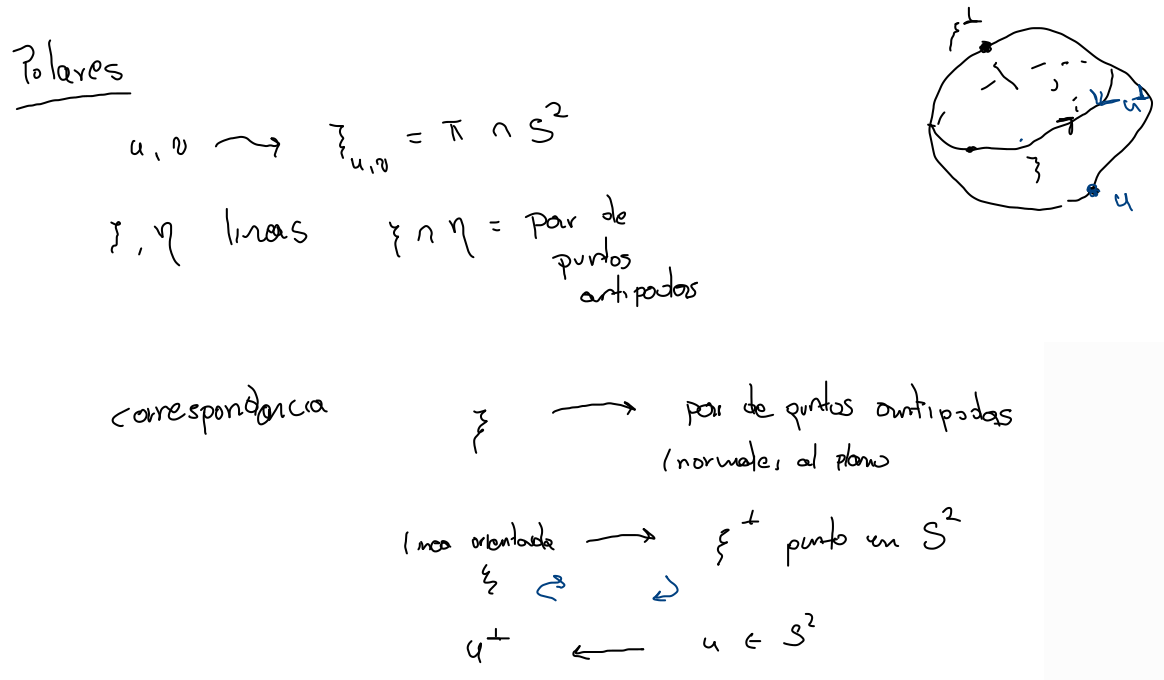 Polares
ξ^⊥
u^⊥
ξ
u
u, v ⟶ ξ_{u,v} = π ∩ S^2
ξ, η lineas ξ ∩ η = par de
puntos
antipodas
correspondencia ξ ⟶ par de puntos antipodas
(normales al plano
linea orientada ⟶ ξ^⊥ punto en S^2
ξ
u^⊥ ⟵ u ∈ S^2